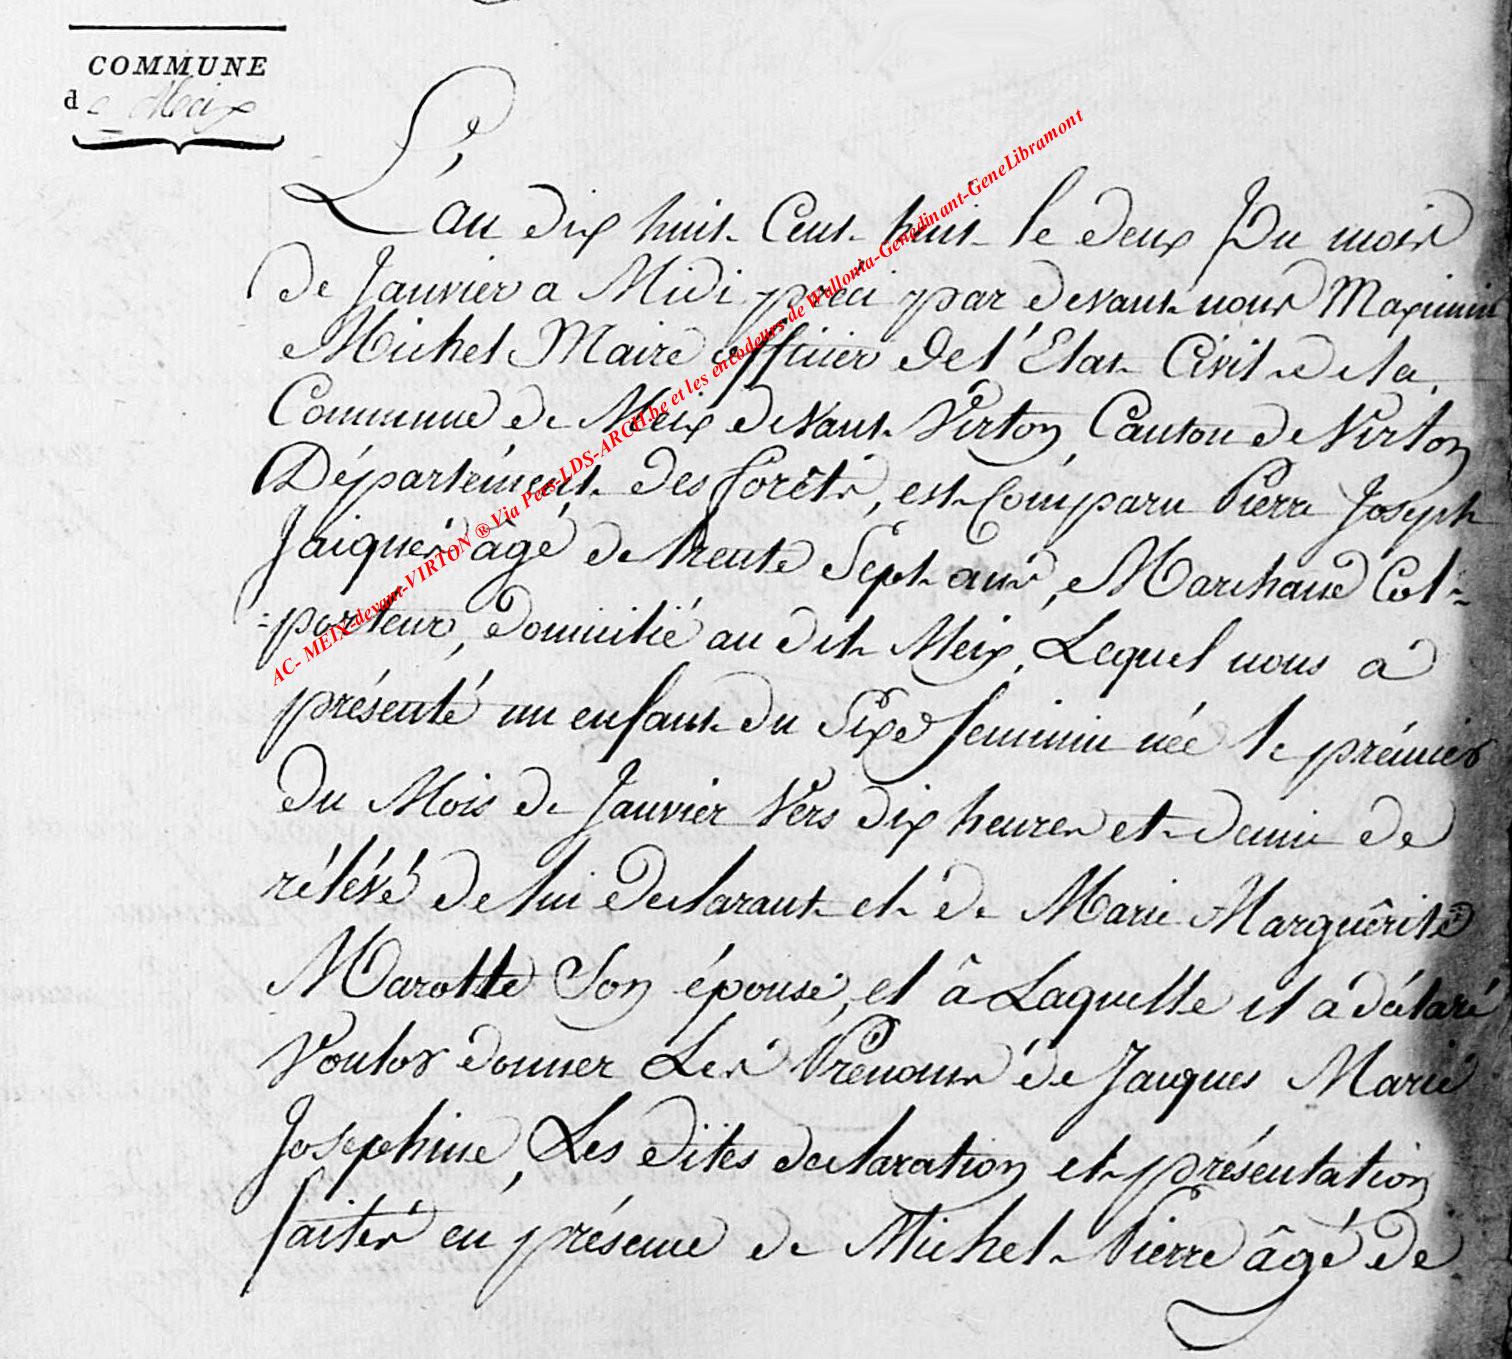 COMMUNE
de Meix
L'an dix huit Cent huit le deux Du mois
de Janvier a Midi préci par devant nous Maximin
Michel Maire officier de l'Etat Civil de la
Commune de Meix devant Virton, Canton de Virton
Département des forêts, est Comparu Pierre Joseph
Jaiques âgé de trente Sept ans, Marchand Col=
=porteur, domicilié au dit Meix, Lequel nous a
présenté un enfant du Sixe feminin née le prémier
du Mois de Janvier Vers dix heures et demie de
rélévé de lui declarant et de Marie Marguêrite
Marotte Son épouse, et â Laquelle il a déclaré
Voulor donner Les Prenoms de Jacques Marie
Josephine, Les dites declaration et présentation
faites en présence de Michel Pierre âgé de
AC- MEIX-devant-VIRTON ® Via Pers-LDS-ARCH.be et les encodeurs de Wallonia-Genedinant-GeneLibramont